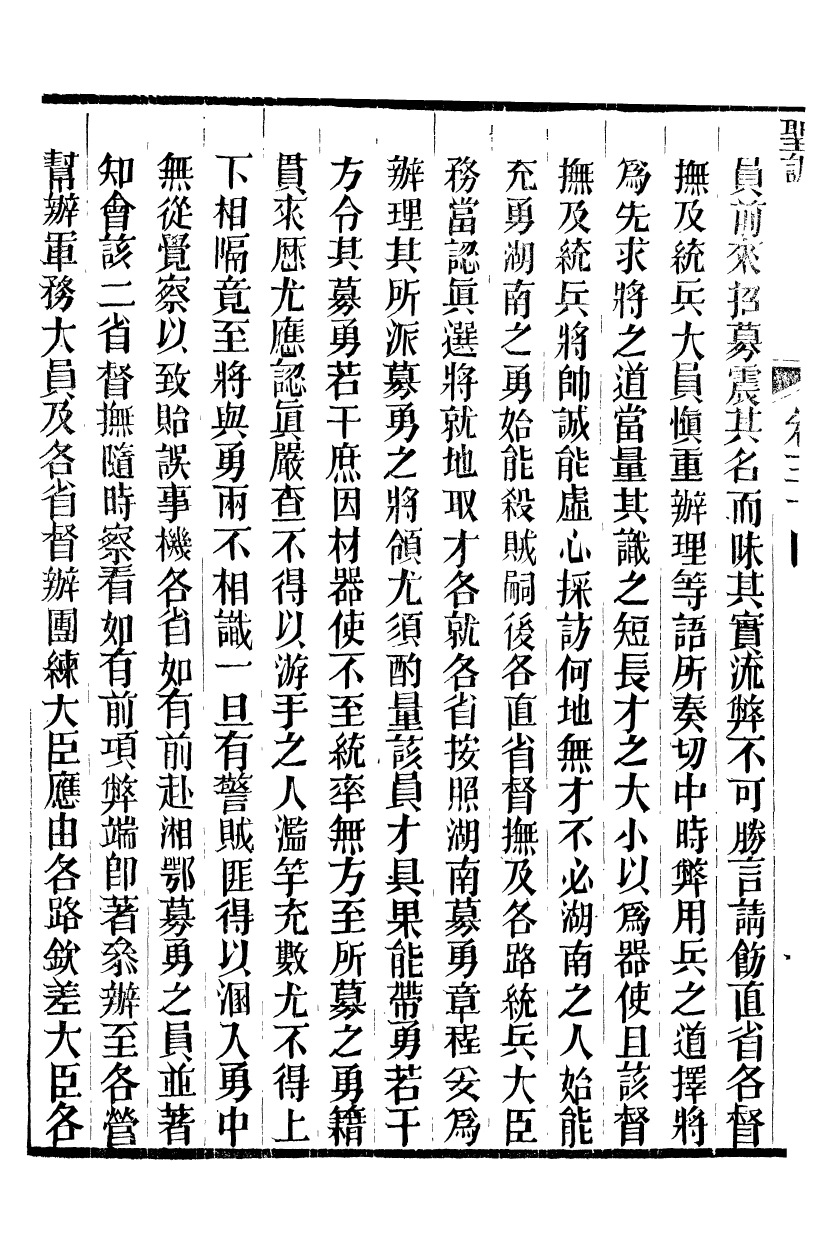 聖訓
卷三十
員前來招募震其名而昧其實流弊不可勝言請飭直省各督
撫及統兵大員愼重辦理等語所奏切中時弊用兵之道擇將
爲先求將之道當量其識之短長才之大小以爲器使且該督
撫及統兵將帥誠能虛心採訪何地無才不必湖南之人始能
充勇湖南之勇始能殺賊嗣後各直省督撫及各路統兵大臣
務當認眞選將就地取才各就各省按照湖南募勇章程妥爲
辦理其所派募勇之將領尤須酌量該員才具果能帶勇若干
方令其募勇若干庶因材器使不至統率無方至所募之勇籍
貫來歷尤應認眞嚴查不得以游手之人濫竽充數尤不得上
下相隔竟至將與勇兩不相識一旦有警賊匪得以溷入勇中
無從覺察以致貽誤事機各省如有前赴湘鄂募勇之員並著
知會該二省督撫隨時察看如有前項弊端卽著叅辦至各營
幫辦軍務大員及各省督辦團練大臣應由各路欽差大臣各